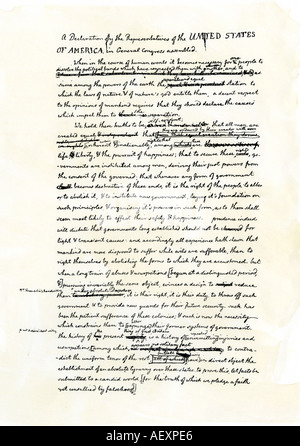 A Declaration by the Representatives of the UNITED STATES
OF AMERICA, in General Congress assembled.
When in the course of human events it becomes necessary for people to
dissolve the political bands which have connected them with another, and to
-sume among the powers of the earth the station to
which the laws of nature & of nature's god entitle them, a decent respect
to the opinions of mankind requires that they should declare the causes
which impel them to the separation.
We hold these truths to be that all men are
created equal
rights
life & liberty, & the pursuit of happiness; that to secure these ends, go-
-vernments are instituted among men, deriving their just powers from
the consent of the governed; that whenever any form of government
becomes destructive of these ends, it is the right of the people to alter
or to abolish it, & to institute new government, laying it's foundation on
such principles & organising it's powers in such form, as to them shall
seem most likely to effect their safety & happiness. prudence indeed
will dictate that governments long established should not be changed for
light & transient causes: and accordingly all experience hath shewn that
mankind are more disposed to suffer while evils are sufferable, than to
right themselves by abolishing the forms to which they are accustomed. but
when a long train of abuses & usurpations [begun at a distinguished period,
& pursuing invariably the same object, evinces a design to reduce
them it is their right, it is their duty, to throw off such
government & to provide new guards for their future security. such has
been the patient sufferance of these colonies; & such is now the necessity
which constrains them to their former systems of government.
the history of present is a history of injuries and
usurpations, among which to contra-
-dict the uniform tenor of the rest have in direct object the
establishment of an absolute tyranny over these states. to prove this let facts be
submitted to a candid world [for the truth of which we pledge a faith
yet unsullied by falsehood]
alamy
AEXPE6